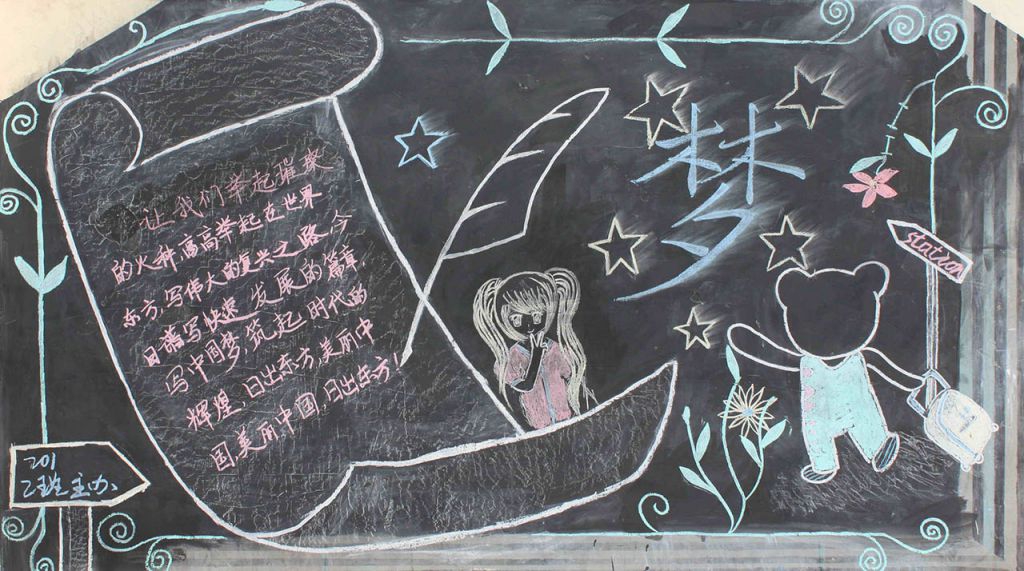 让我们举起璀璨
的火种高高举起在世界
东方,写伟人的复兴之路,今
日谱写快速发展的篇章
写中国梦,筑起时代的
辉煌,日出东方,美丽中
国,美丽中国,日出东方!
梦
station
201
2班主办